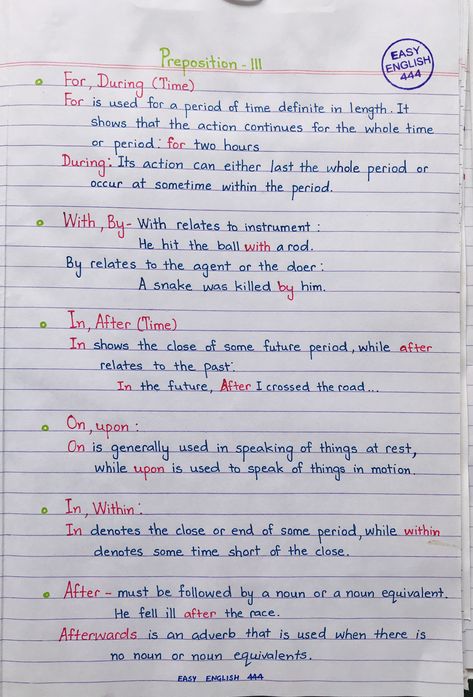 Preposition - III
EASY
ENGLISH
444
For, During (Time)
For is used for a period of time definite in length. It
shows that the action continues for the whole time
or period: for two hours
During: Its action can either last the whole period or
occur at sometime within the period.
With, By- With relates to instrument :
He hit the ball with a rod.
By relates to the agent or the doer:
A snake was killed by him.
In, After (Time)
In shows the close of some future period, while after
relates to the past:
In the future, After I crossed the road...
On, upon :
On is generally used in speaking of things at rest,
while upon is used to speak of things in motion.
In, Within:
In denotes the close or end of some period, while within
denotes some time short of the close.
After - must be followed by a noun or a noun equivalent.
He fell ill after the race.
Afterwards is an adverb that is used when there is
no noun or noun equivalents.
EASY ENGLISH 444